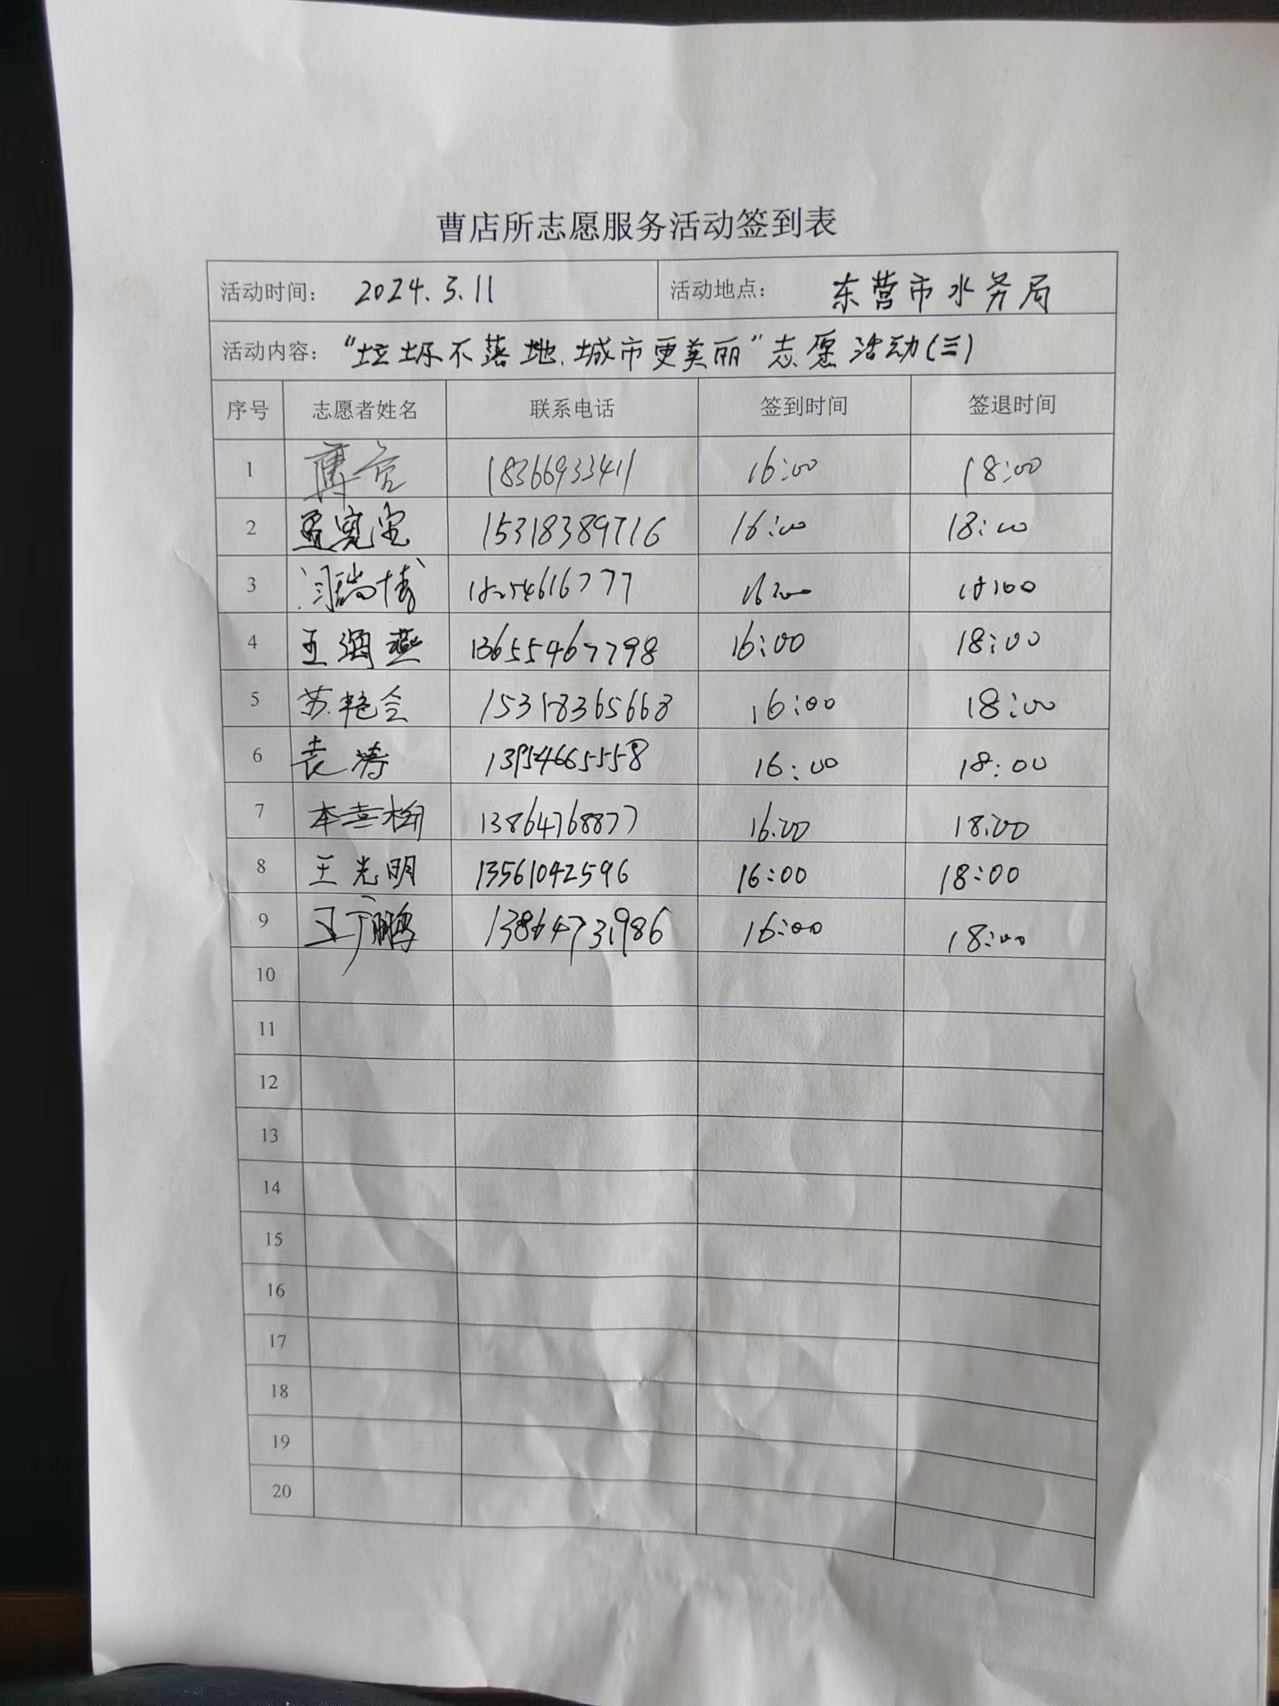 曹店所志愿服务活动签到表
活动时间： 2024.3.11 活动地点： 东营市水务局
活动内容： “垃圾不落地.城市更美丽”志愿活动(三)
序号 志愿者姓名 联系电话 签到时间 签退时间
1 18366933411 16:00 18:00
2 15318389716 16:00 18:00
3 16:00 18:00
4 王海燕 13655467798 16:00 18:00
5 苏艳会 15318365668 16:00 18:00
6 袁涛 13954665558 16:00 18:00
7 13864768877 16.00 18.00
8 王光明 13561042596 16:00 18:00
9 王广鹏 13864731986 16:00 18:00
10
11
12
13
14
15
16
17
18
19
20